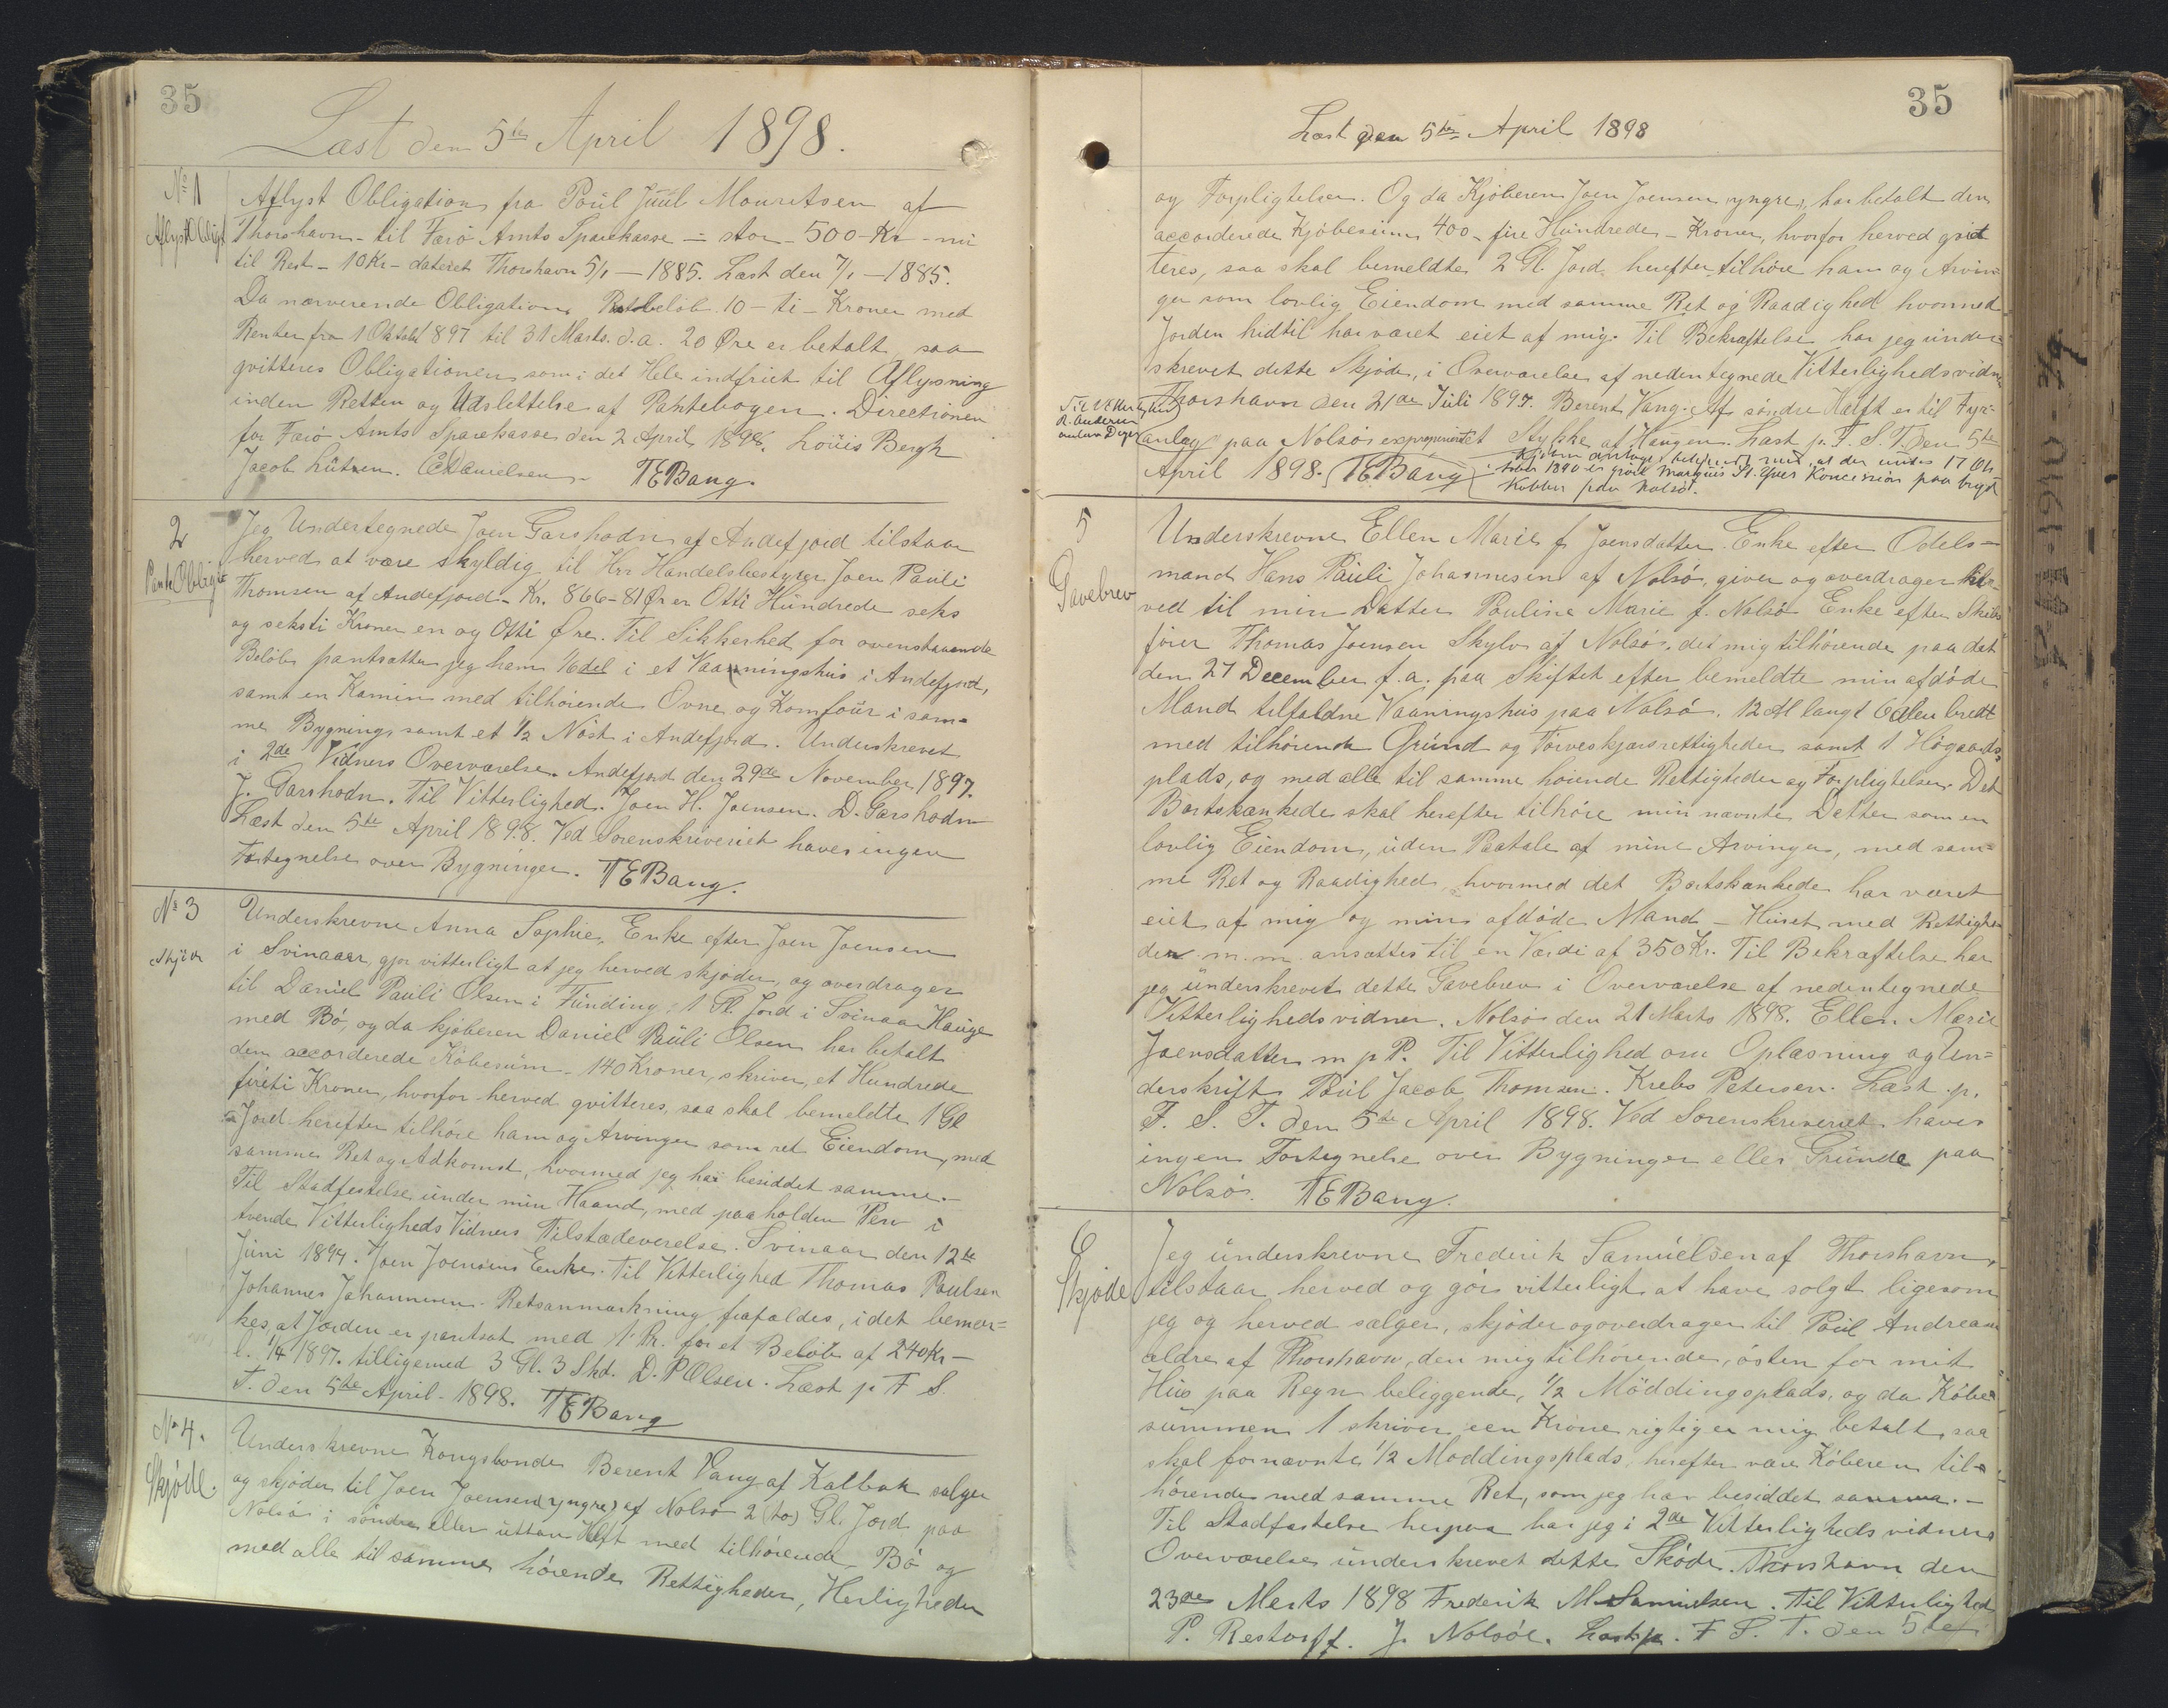 35
Læst den 5te April 1898.
No 1
Aflyst Obligt
Aflyst Obligation fra Poul Juul Mouritsen af
Thorshavn - til Færö Amts Sparekasse - stor - 500 - Kr - nu
til Rest - 10 Kr - dateret Thorshavn 5/1 - 1885. Læst den 7/1 - 1885.
Da nærværende Obligations Restbelöb 10 - ti - Kroner med
Renter fra 1 Oktobr 1897 til 31 Marts d.a. 20 Øre er betalt, saa
qvitteres Obligationen som i det Hele indfriet til Aflysning
inden Retten og Udslettelse af Pantebogen. Directionen
for Færö Amts Sparekasse den 2 April 1898. Louis Bergh
Jacob Lützen. E Danielsen. TEBang.
2
Pante Obligt
Jeg Undertegnede Joen Garshodn af Andefjord tilstaar
herved at være skyldig til Hrr Handelsbestyrer Joen Pauli
Thomsen af Andefjord - Kr. 866 - 81 Ører Otti Hundrede seks
og seksti Kroner en og Otti Øre. Til Sikkerhed for ovenstaaende
Belöb pantsætter jeg ham 1/6 del i et Vaaningshus i Andefjord,
samt en Kamin med tilhörende Ovne og Komfour i sam-
me Bygning samt et 1/2 Nöst i Andefjord. Underskrevet
i 2de Vidners Overværelse. Andefjord den 29de November 1897.
J. Garshodn. Til Vitterlighed. Joen H. Joensen. D. Garshodn
Læst den 5te April 1898. Ved Sorenskriveriet haves ingen
Fortegnelse over Bygninger. TEBang.
No 3
Skjöde
Underskrevne Anna Sophie, Enke efter Joen Joensen
i Svinaaer, gjør vitterligt at jeg herved skjöder og overdrager
til Daniel Pauli Olsen i Funding, 1 Gl. Jord i Svinaa Hauge
med Bö, og da kjöberen Daniel Pauli Olsen har betalt
den accorderede Köbesum - 140 Kroner, skriver, et Hundrede
fireti Kroner, hvorfor herved qvitteres, saa skal bemeldte 1 Gl
Jord herefter tilhöre ham og Arvinger som ret Eiendom, med
samme Ret og Adkomst, hvormed jeg har besiddet samme.-
Til Stadfestelse under min Haand, med paaholden Pen i
tvende Vitterligheds Vidners Tilstedeværelse. Svinaar den 12te
Juni 1897. Joen Joensens Enke. Til Vitterlighed Thomas Poulsen
Johannes Johannesen. Retsanmærkning frafaldes, idet bemær-
kes, at Jorden er pantsat med 1 Pr. for et Belöb af 240 Kr -
l. 1/4 1897. tilligemed 3 Gl. 3 Skd. D. P Olsen. Læst p. F S.
T. den 5te April 1898. TEBang
No 4.
Skjöde.
Underskrevne Kongsbonde Berent Vang af Kalbak sælger
og skjöder til Joen Joensen (yngre) af Nolsö 2 (to) Gl. Jord paa
Nolsö i söndre eller uttan Helft med tilhörende Bö og
med alle til samme hörende Rettigheder, Herligheder
35
Læst den 5te April 1898
og Forpligtelser. Og da Kjöberen Joen Joensen yngre, har betalt den
accorderede Kjöbesum 400 - fire Hundrede - Kroner, hvorfor herved qvit
teres, saa skal bemeldte 2 Gl. Jord herefter tilhöre ham og Arvin-
ger som lovlig Eiendom med samme Ret og Raadighed hvormed
Jorden hidtil har været eiet af mig. Til Bekræftelse har jeg under-
skrevet dette Skjöde, i Overværelse af nedentegnede Vitterlighedsvidne
Thorshavn den 21de Juli 1897. Berent Vang. Af söndre Hælft er til Fyr-
Til Vitterlighed
R. Andersen
anlæg paa Nolsö exproprieret Stykke af Haugen. Læst p. F. S. T. den 5te
April 1898. TEBang
at der under 17 Ok
tober 1890 er givet Marquis St. Yves Koncession paa bryd
Kobber paa Nolsö.
5
Gavebrev
Underskrevne Ellen Marie f. Joensdatter Enke efter Odels-
mand Hans Pauli Johannesen af Nolsö, giver og overdrager her-
ved til min Datter Pauline Marie f. Nolsö Enke efter Skibs
förer Thomas Joensen Skylv af Nolsö, det mig tilhörende paa det
den 27 December f.a. paa Skiftet efter bemeldte min afdöde
Mand tilfaldne Vaaningshus paa Nolsö. 12 Al langt 6 Alen bredt
med tilhörende Grund og Törveskjærsrettigheder samt 1 Högaards-
plads, og med alle til samme höiende Rettigheder og Forpligtelser. Det
Bortskænkede skal herefter tilhöre min nævnte Datter som en
lovlig Eiendom, uden Paatale af mine Arvinger, med sam-
me Ret og Raadighed, hvormed det Bortskænkede har været
eiet af mig og min afdöde Mand - Huset med Rettighe
der m.m. ansættes til en Værdi af 350 Kr. Til Bekræftelse har
jeg underskrevet dette Gavebrev i Overværelse af nedentegnede
Vitterlighedsvidner. Nolsö den 21 Marts 1898. Ellen Marie
Joensdatter m p P. Til Vitterlighed om Oplæsning og Un-
derskrift Poul Jacob Thomsen. Krebs Petersen. Læst p.
F. S. T. den 5te April 1898. Ved Sorenskriveriet haves
ingen Fortegnelse over Bygninger eller Grunde paa
Nolsö. TEBang.
6
Skjöde
Jeg underskrevne Frederik Samuelsen af Thorshavn,
tilstaar herved og gör vitterligt at have solgt ligesom
jeg og herved sælger, skjöder og overdrager til Poul Andreasen
ældre af Thorshavn, den mig tilhörende, östen for mit
Hus paa Reyn beliggende, 1/2 Möddingsplads, og da Köbe
summen 1 skriver een Krone rigtig er mig betalt, saa
skal fornævnte 1/2 Moddingsplads, herefter være Köberen til-
hörende med samme Ret, som jeg har besiddet samme.-
Til Stadfæstelse herpaa har jeg i 2de Vitterligheds vidners
Overværelse underskrevet dette Sköde. Thorshavn den
23de Marts 1898 Frederik M Samuelsen. Til Vitterlighed
P. Restorff. J. Nolsöe. Læst p. F S. T. den 5te